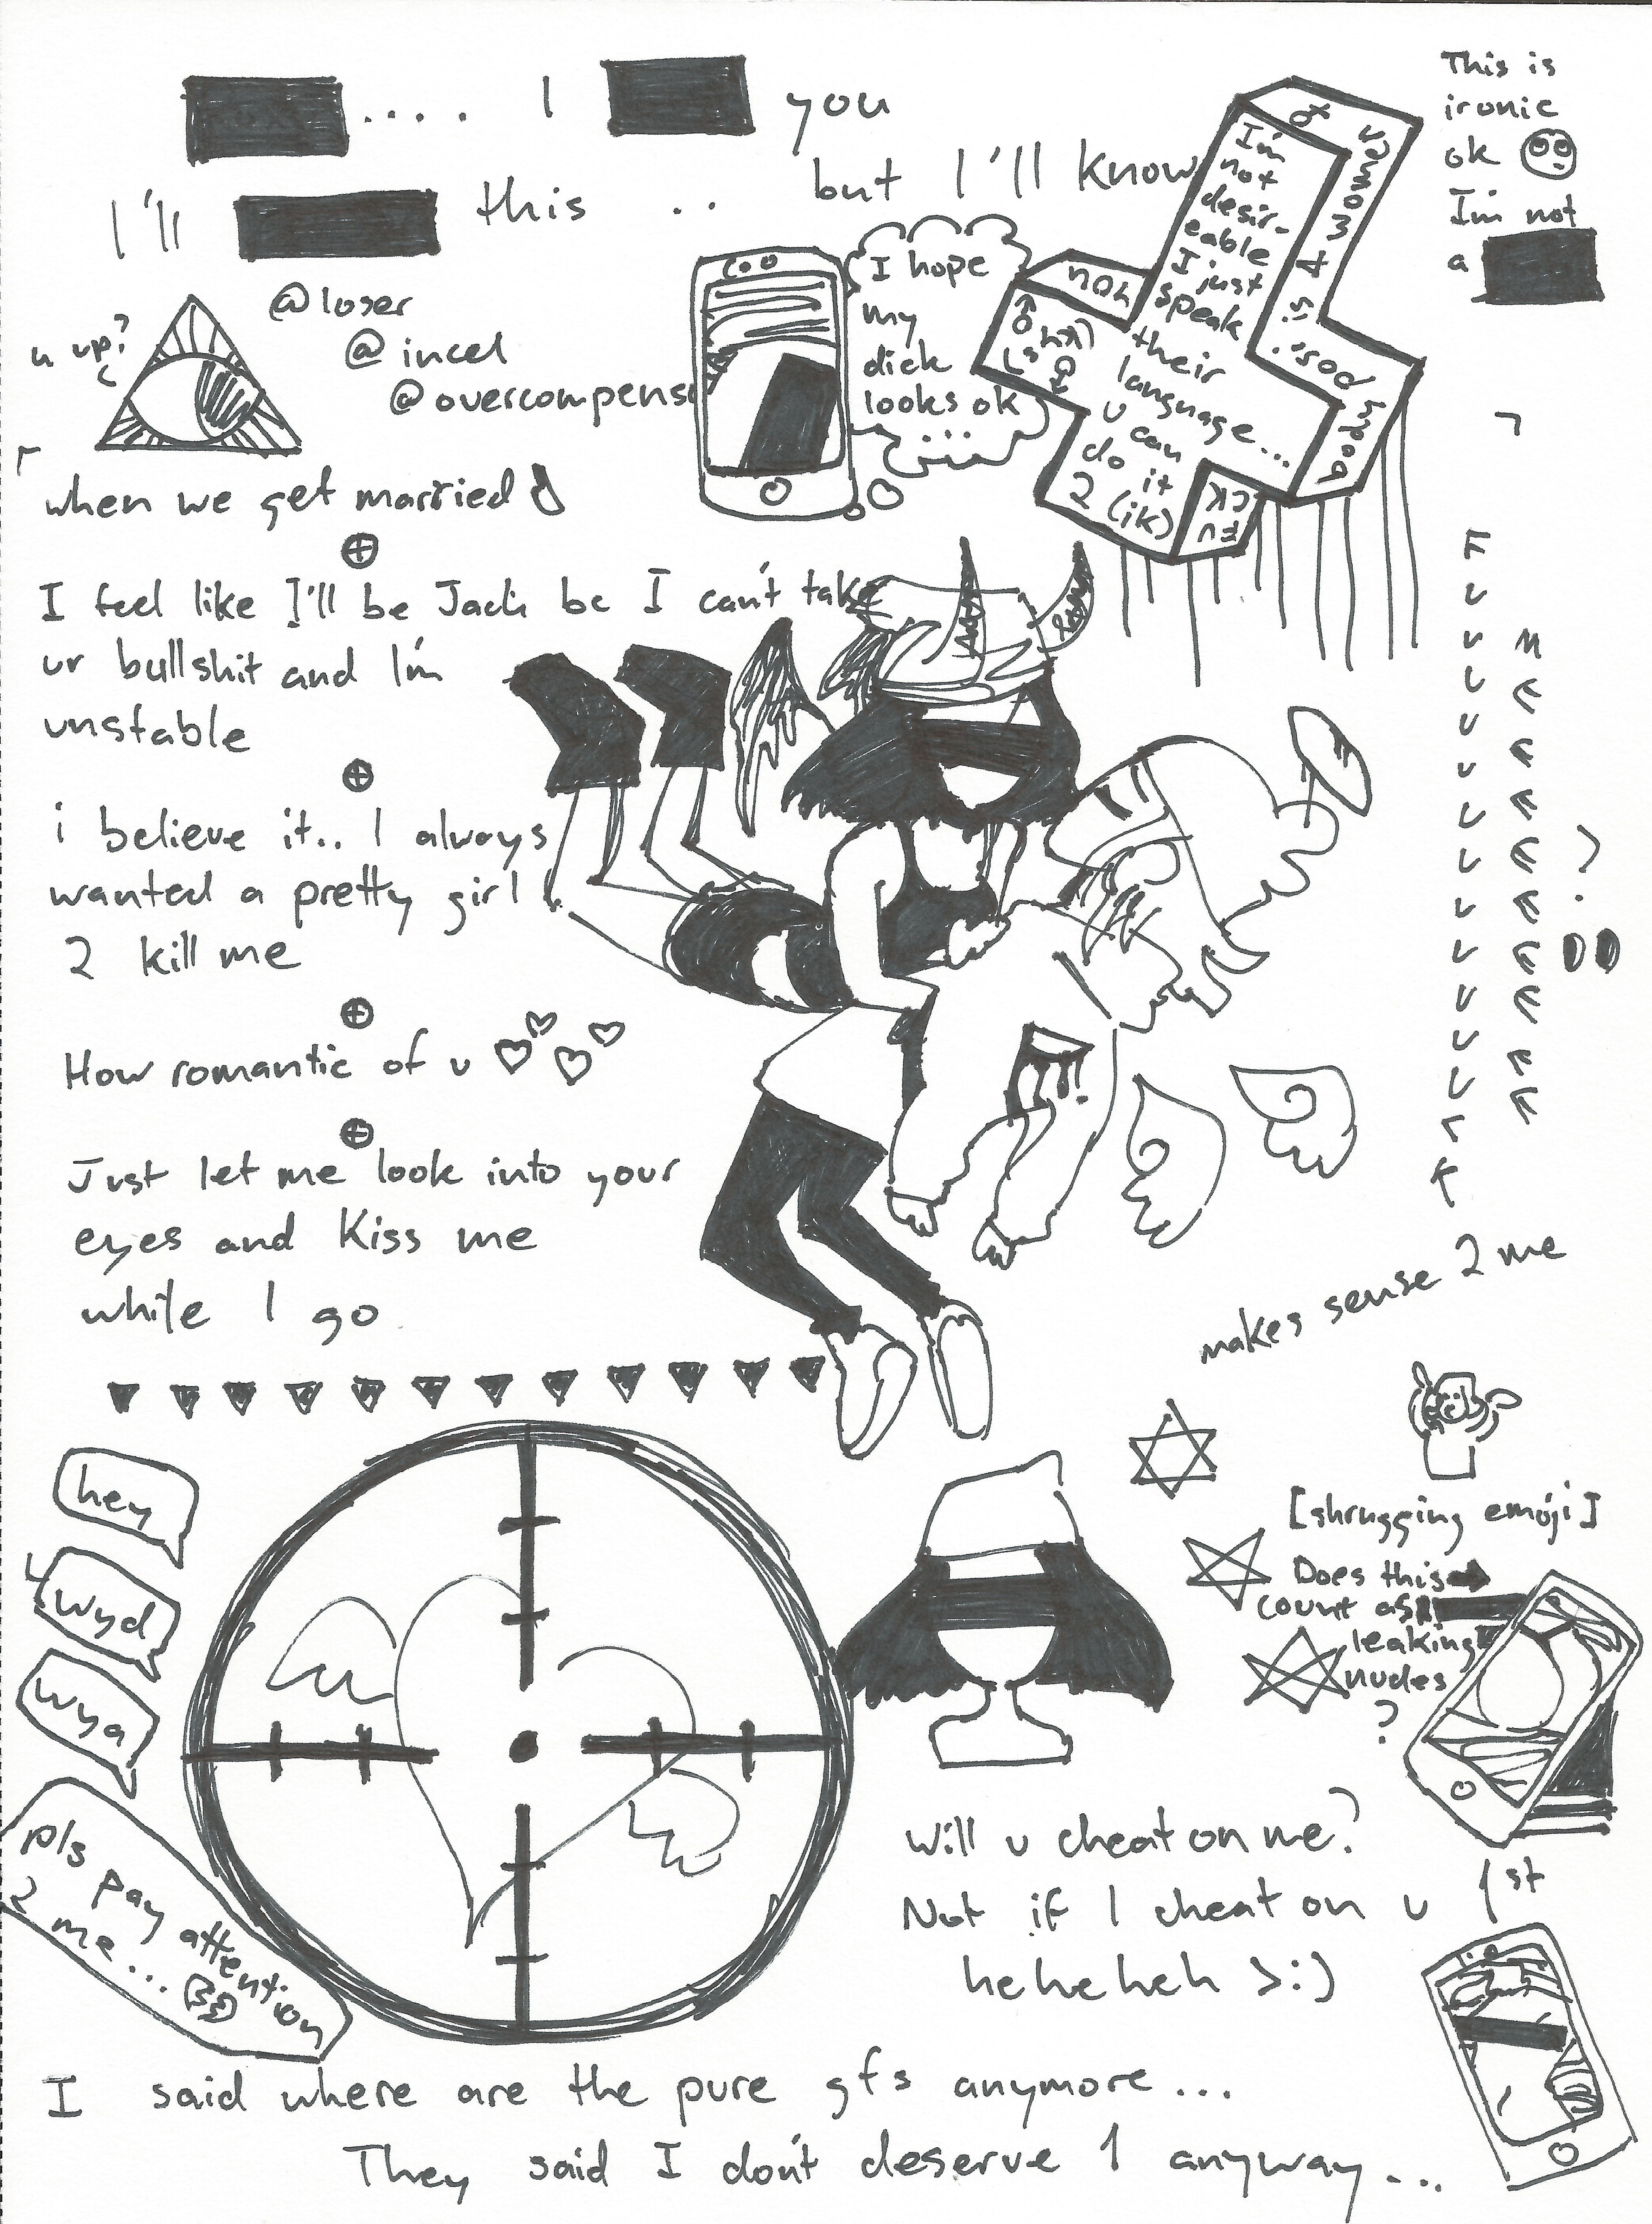 .... I you
but I'll know
I'll this ..
This is
ironic
ok
I'm not
a
I'm
not
desir-
eable
I just
speak
their
language...
u can
do it
2 (ik)
FUCK
@loser
@incel
@overcompens
u up?
I hope
my
dick
looks ok
...
when we get married
I feel like I'll be Jack bc I can't take
ur bullshit and I'm
unstable
i believe it.. I always
wanted a pretty girl
2 kill me
How romantic of u
Just let me look into your
eyes and kiss me
while I go
Fuuuuuuuuuuuurk
me
?
makes sense 2 me
hey
wyd
wya
pls pay attention
2 me...
[shrugging emoji]
Does this
count as
leaking
nudes
?
Will u cheat on me?
Not if I cheat on u 1st
heheheh >:)
I said where are the pure gfs anymore...
They said I don't deserve 1 anyway...